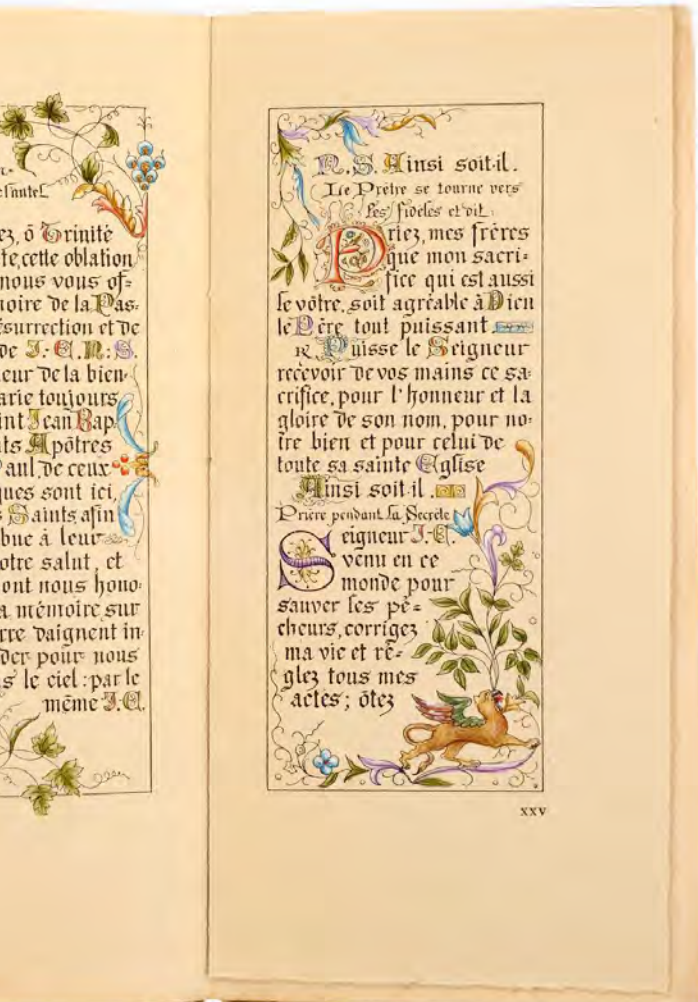 ez, ô Trinité
te, cette oblation
nous vous of=
moire de la Pas=
ésurrection et de
de J.-C. N. S.
eur de la bien-
arie toujours
int Jean Bap.
ts Apôtres
Paul, de ceux
ques sont ici,
s Saints afin
bue à leur
otre salut, et
ont nous hono-
a mémoire sur
rre daignent in-
der pour nous
s le ciel : par le
même J.-C.
N. S. Ainsi soit-il.
Le Prêtre se tourne vers
les fidèles et dit :
Priez, mes frères
que mon sacri=
fice qui est aussi
le vôtre, soit agréable à Dieu
le Père tout puissant.
R. Puisse le Seigneur
recevoir de vos mains ce sa-
crifice, pour l'honneur et la
gloire de son nom, pour no=
tre bien et pour celui de
toute sa sainte Eglise
Ainsi soit-il.
Prière pendant la Secrète
Seigneur J.-C.
venu en ce
monde pour
sauver les pé=
cheurs, corrigez
ma vie et ré=
glez tous mes
actes ; ôtez
XXV